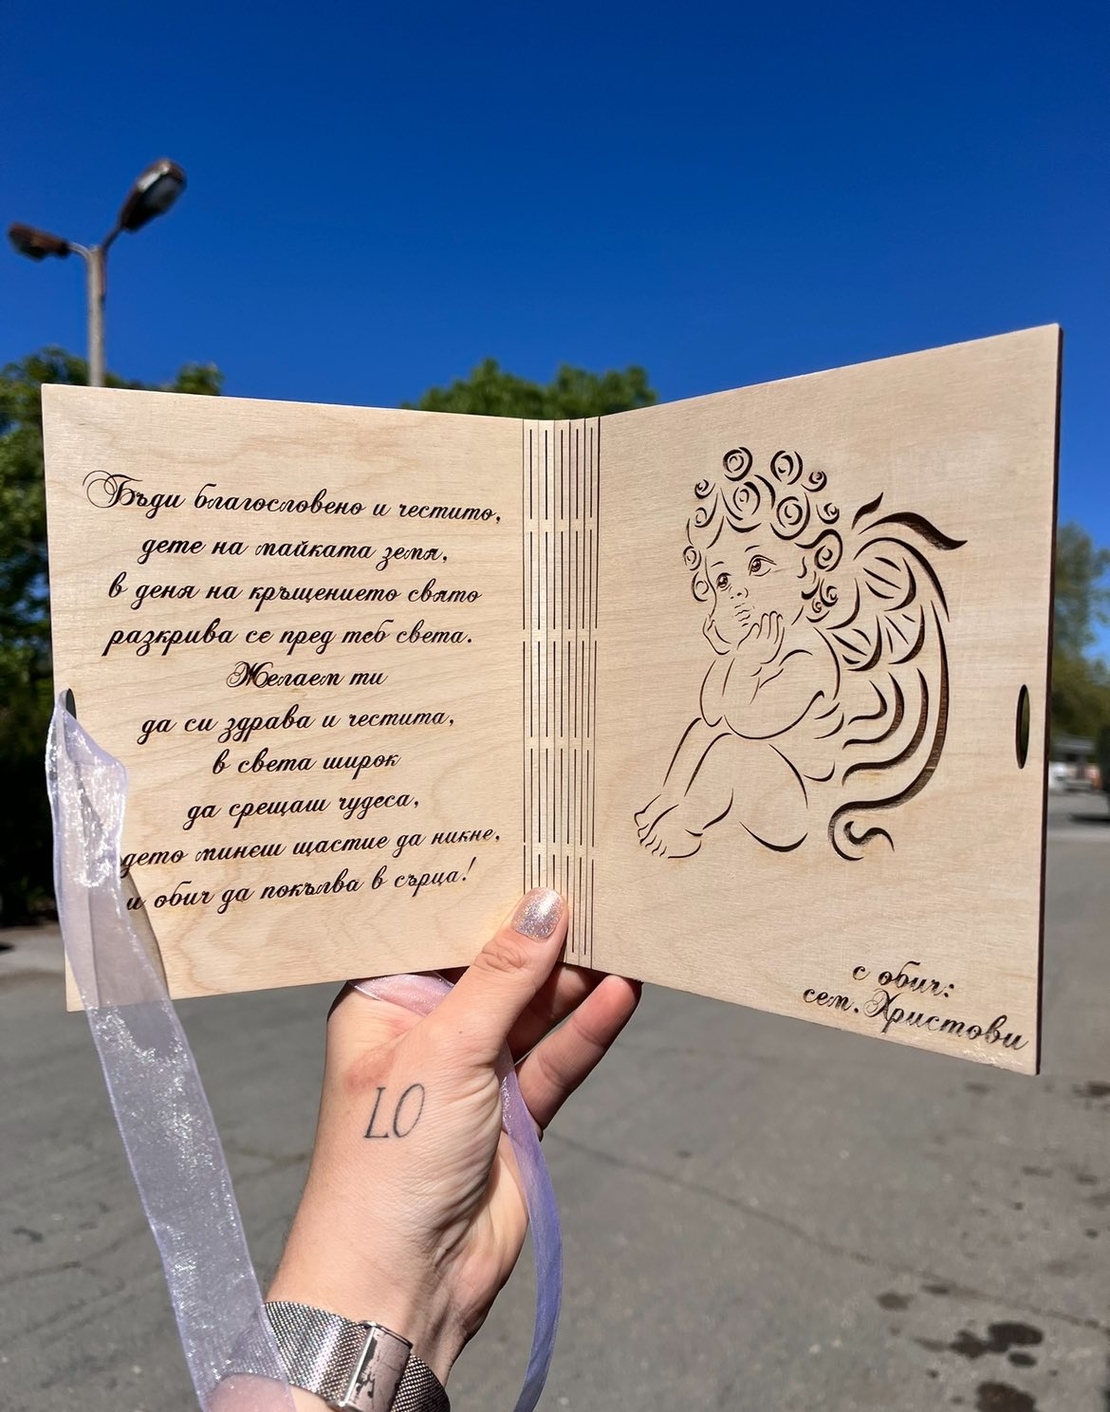 Бъди благословено и честито,
дете на майката земя,
в деня на кръщението свято
разкрива се пред теб света.
Желаем ти
да си здрава и честита,
в света широк
да срещаш чудеса,
дето минеш щастие да никне,
и обич да покълва в сърца!
с обич:
сем. Христови
LO